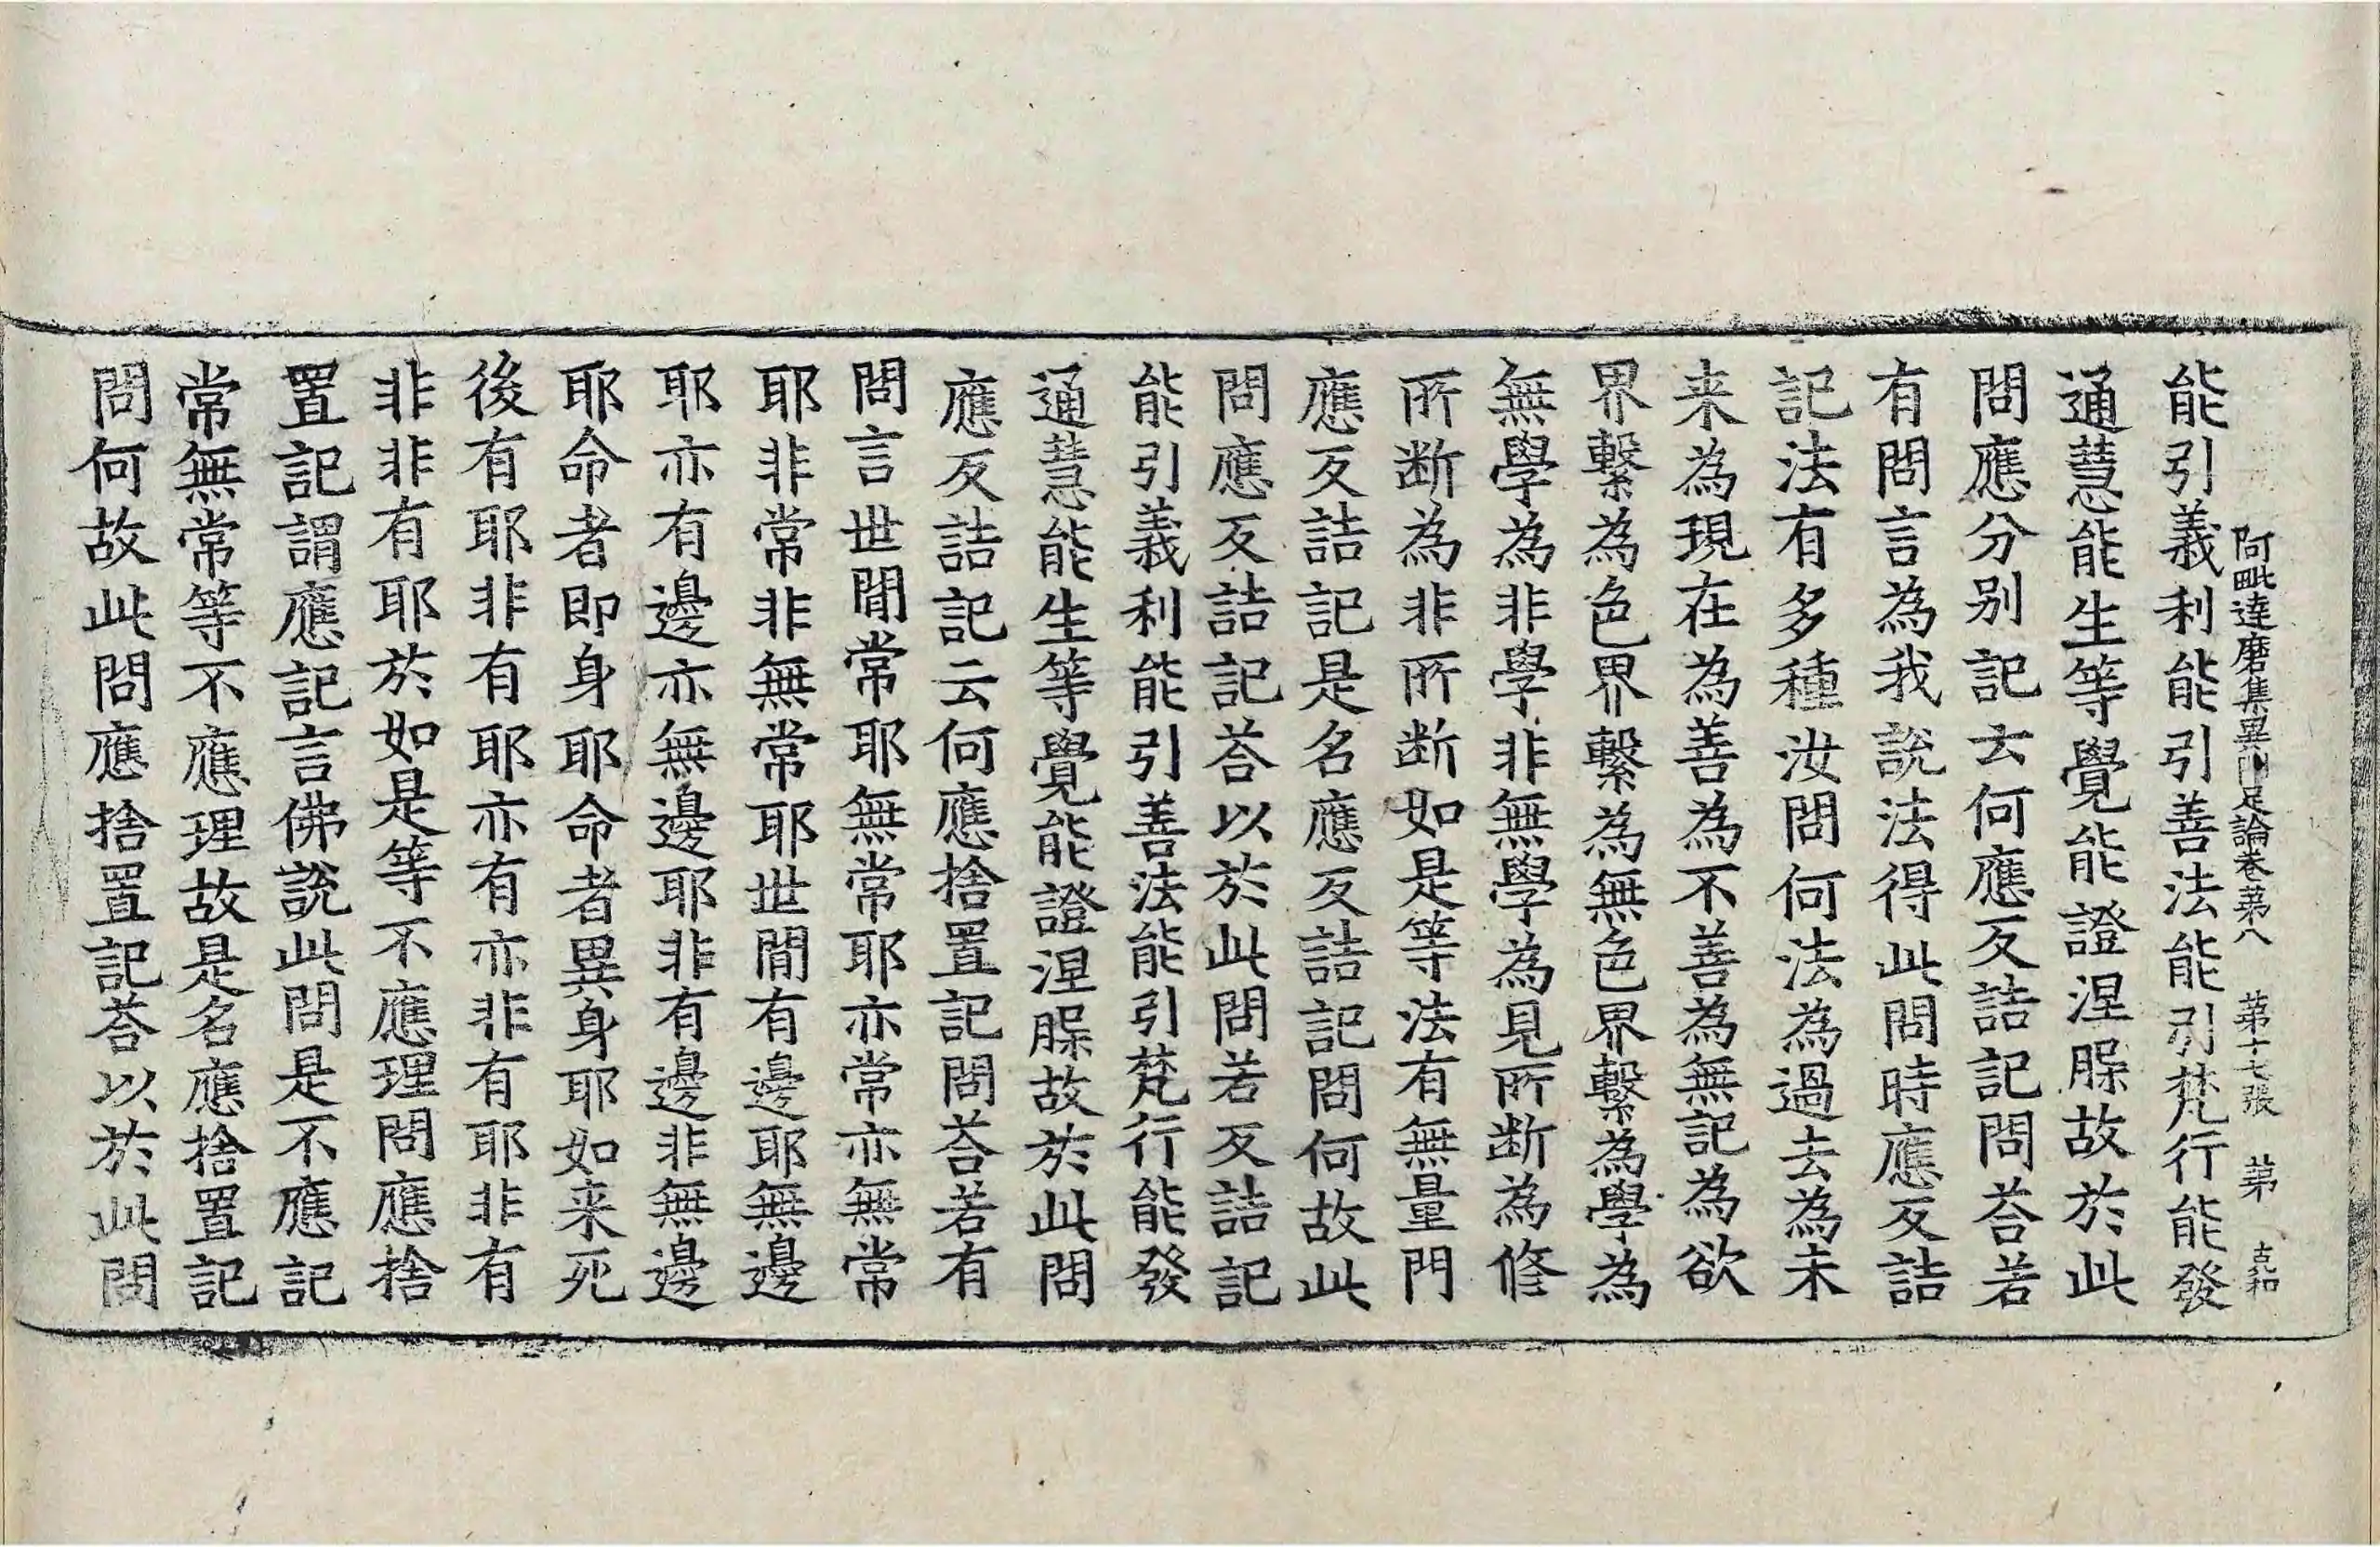 阿毗達磨集異門足論卷苐八 苐十七張 苐
能引義利能引善法能引梵行能發
通慧能生等覺能證涅槃故於此
問應分别記云何應反詰記問荅若
有問言為我說法得此問時應反詰
記法有多種汝問何法為過去為未
来為現在為善為不善為無記為欲
界繫為色界繫為無色界繫為學為
無學為非學非無學為見所断為修
所断為非所断如是等法有無量門
應反詰記是名應反詰記問何故此
問應反詰記荅以於此問若反詰記
能引義利能引善法能引梵行能發
通慧能生等覺能證涅槃故於此問
應反詰記云何應捨置記問荅若有
問言世間常耶無常耶亦常亦無常
耶非常非無常耶世間有邊耶無邊
耶亦有邊亦無邊耶非有邊非無邊
耶命者即身耶命者異身耶如来死
後有耶非有耶亦有亦非有耶非有
非非有耶於如是等不應理問應捨
置記謂應記言佛說此問是不應記
常無常等不應理故是名應捨置記
問何故此問應捨置記荅以於此問